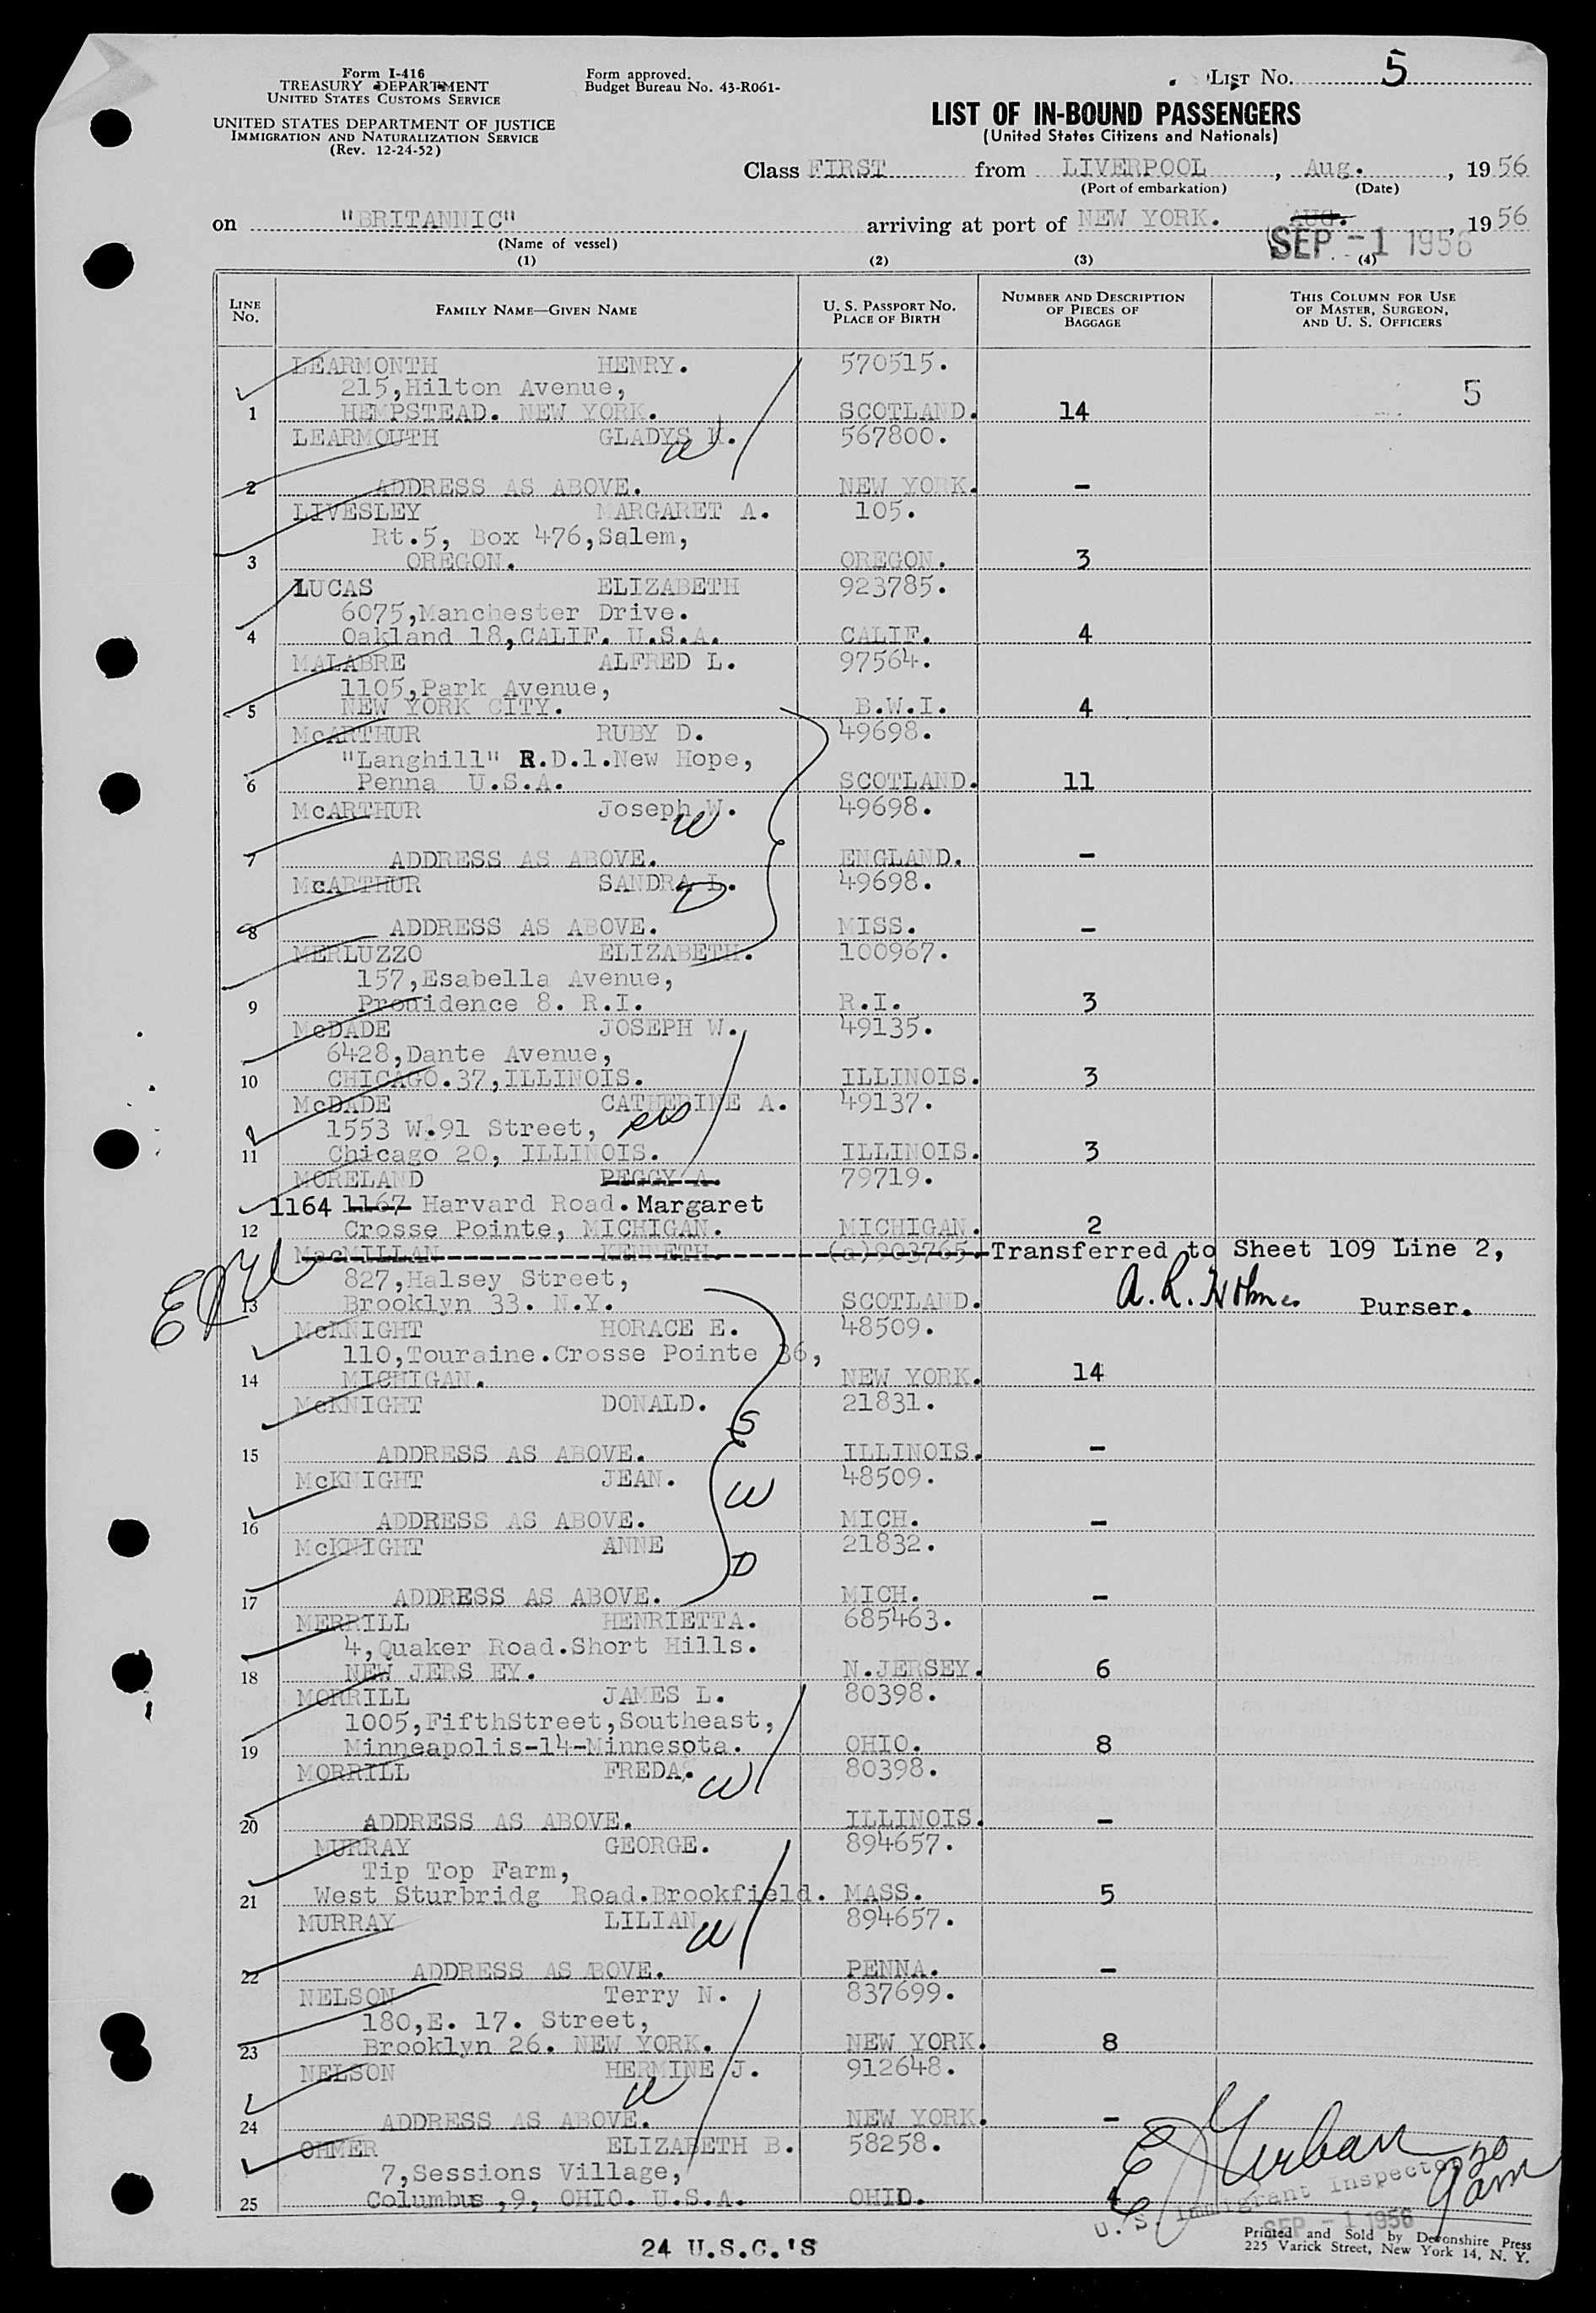 Form I-416
TREASURY DEPARTMENT
UNITED STATES CUSTOMS SERVICE
UNITED STATES DEPARTMENT OF JUSTICE
IMMIGRATION AND NATURALIZATION SERVICE
(Rev. 12-24-52)
Form approved.
Budget Bureau No. 43-R061-
LIST No. 5
LIST OF IN-BOUND PASSENGERS
(United States Citizens and Nationals)
Class FIRST from LIVERPOOL, Aug., 1956
(Port of embarkation) (Date)
on "BRITANNIC" arriving at port of NEW YORK. AUG., 1956
SEP -1 1956
(Name of vessel)
(1) (2) (3) (4)
LINE No. FAMILY NAME—GIVEN NAME U. S. PASSPORT No. PLACE OF BIRTH NUMBER AND DESCRIPTION OF PIECES OF BAGGAGE THIS COLUMN FOR USE OF MASTER, SURGEON, AND U. S. OFFICERS
LEARMONTH HENRY. 570515.
215,Hilton Avenue, 5
1 HEMPSTEAD. NEW YORK. SCOTLAND. 14
LEARMOUTH GLADYS H. 567800.
W
2 ADDRESS AS ABOVE. NEW YORK. -
LIVESLEY MARGARET A. 105.
Rt.5, Box 476,Salem,
3 OREGON. OREGON. 3
LUCAS ELIZABETH 923785.
6075,Manchester Drive.
4 Oakland 18,CALIF. U.S.A. CALIF. 4
MALABRE ALFRED L. 97564.
1105,Park Avenue,
5 NEW YORK CITY. B.W.I. 4
McARTHUR RUBY D. 49698.
"Langhill" R.D.1.New Hope,
6 Penna U.S.A. SCOTLAND. 11
McARTHUR Joseph W. 49698.
W
7 ADDRESS AS ABOVE. ENGLAND. -
McARTHUR SANDRA L. 49698.
D
8 ADDRESS AS ABOVE. MISS. -
MERLUZZO ELIZABETH. 100967.
157,Esabella Avenue,
9 Prouidence 8. R.I. R.I. 3
McDADE JOSEPH W. 49135.
6428,Dante Avenue,
10 CHICAGO.37,ILLINOIS. ILLINOIS. 3
McDADE CATHERINE A. 49137.
1553 W.91 Street,
11 Chicago 20, ILLINOIS. ILLINOIS. 3
MORELAND PEGGY A. 79719.
1164 1167 Harvard Road. Margaret
12 Crosse Pointe, MICHIGAN. MICHIGAN. 2
MacMILLAN KENNETH. (a)903765. Transferred to Sheet 109 Line 2,
827,Halsey Street,
13 Brooklyn 33. N.Y. SCOTLAND. A. R. Holmes Purser.
McKNIGHT HORACE E. 48509.
110,Touraine.Crosse Pointe 36,
14 MICHIGAN. NEW YORK. 14
McKNIGHT DONALD. 21831.
S
15 ADDRESS AS ABOVE. ILLINOIS. -
McKNIGHT JEAN. 48509.
W
16 ADDRESS AS ABOVE. MICH. -
McKNIGHT ANNE 21832.
D
17 ADDRESS AS ABOVE. MICH. -
MERRILL HENRIETTA. 685463.
4,Quaker Road.Short Hills.
18 NEW JERS EY. N.JERSEY. 6
MORRILL JAMES L. 80398.
1005,FifthStreet,Southeast,
19 Minneapolis-14-Minnesota. OHIO. 8
MORRILL FREDA. 80398.
W
20 ADDRESS AS ABOVE. ILLINOIS. -
MURRAY GEORGE. 894657.
Tip Top Farm,
21 West Sturbridg Road.Brookfield. MASS. 5
MURRAY LILIAN 894657.
W
22 ADDRESS AS ABOVE. PENNA. -
NELSON Terry N. 837699.
180,E. 17. Street,
23 Brooklyn 26. NEW YORK. NEW YORK. 8
NELSON HERMINE J. 912648.
W
24 ADDRESS AS ABOVE. NEW YORK. -
OHMER ELIZABETH B. 58258.
7,Sessions Village,
25 Columbus ,9, OHIO. U.S.A. OHIO. 4
U. S. Immigrant Inspector
SEP -1 1956
24 U.S.C.'S
Printed and Sold by Devonshire Press
225 Varick Street, New York 14, N. Y.